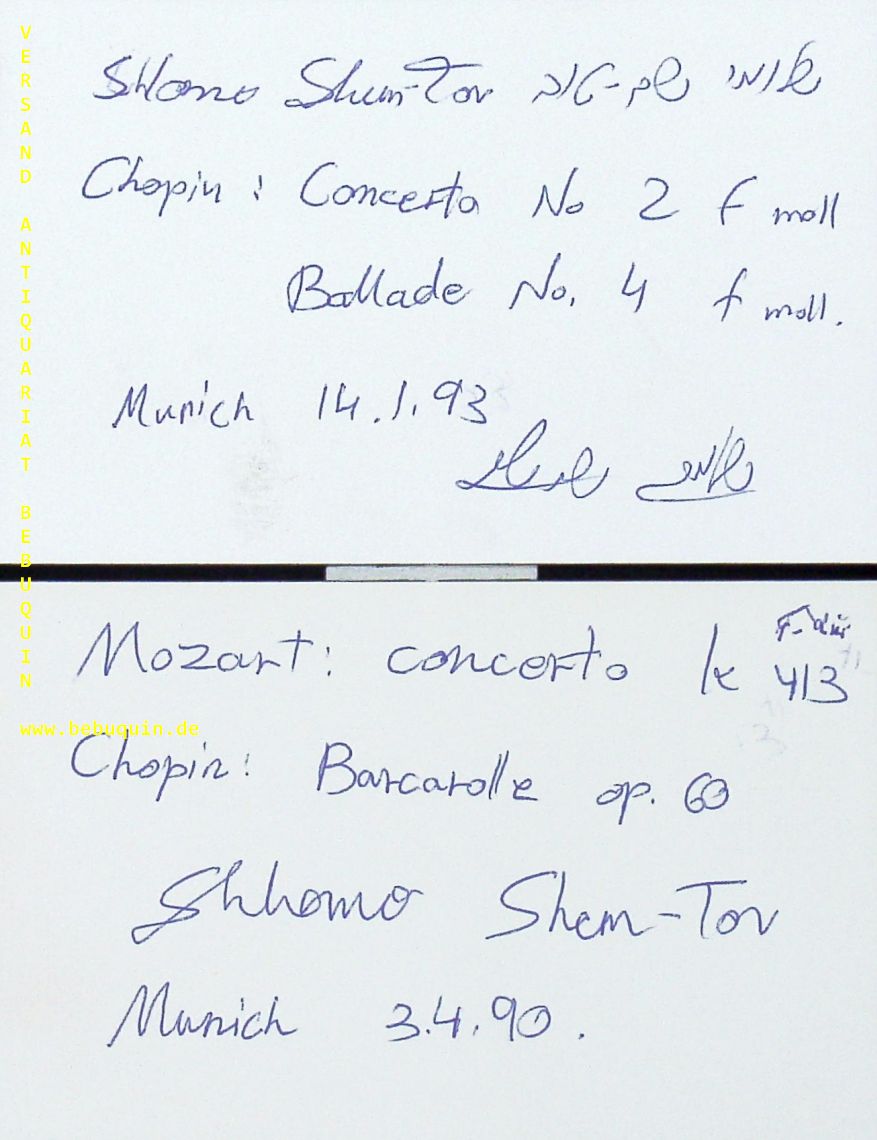 Shlomo Shem-Tov שלומי שם-טוב
Chopin: Concerto No 2 f moll
Ballade No. 4 f moll.
Munich 14.1.93
Mozart: concerto k 413
F-dur
Chopin: Barcarolle op. 60
Shlomo Shem-Tov
Munich 3.4.90.
VERSAND ANTIQUARIAT BEBUQUIN
www.bebuquin.de